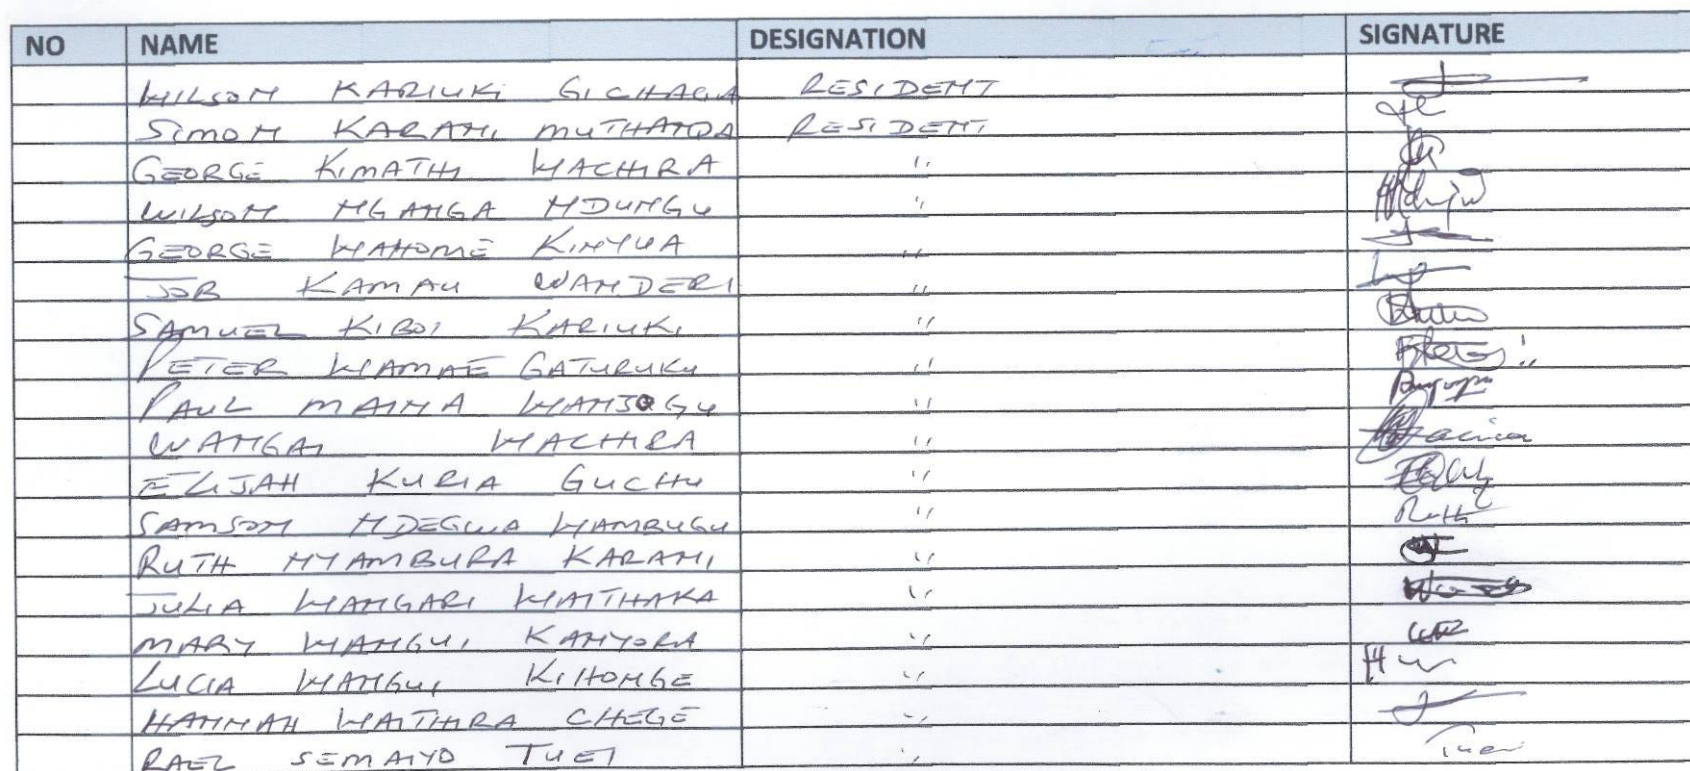 NO NAME DESIGNATION SIGNATURE
WILSON KARIUKI GICHAGA RESIDENT
SIMON KARANI MUTHANDA RESIDENT
GEORGE KIMATHI WACHIRA "
WILSON NGANGA NDUNGU "
GEORGE WAHOME KINYUA "
JOB KAMAU WANDERI "
SAMUEL KIBOI KARIUKI "
PETER WAMAE GATURUKU "
PAUL MAINA WANJOGU "
WANGAI WACHIRA "
ELIJAH KURIA GUCHU "
SAMSON NDEGWA WAMBUGU "
RUTH NYAMBURA KARANI "
JULIA WANGARI WAITHAKA "
MARY WANGUI KANYORA "
LUCIA WANGUI KIHONGE "
HANNAH WAITHIRA CHEGE "
RAEL SEMAIYO TUEI "